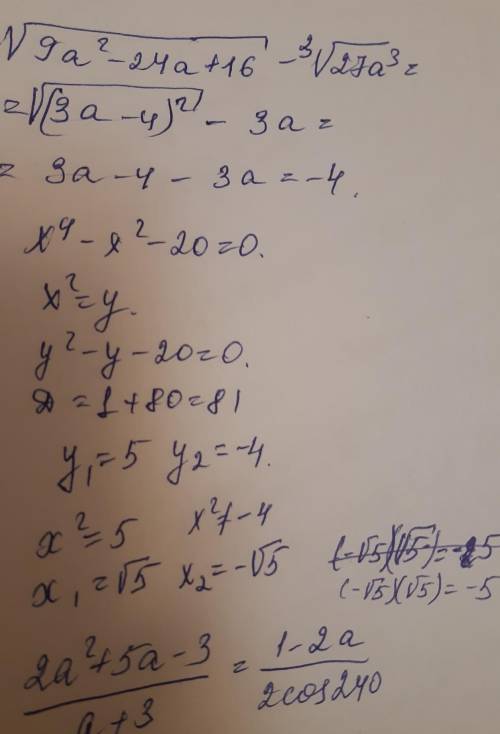 √(9a² - 24a + 16) - ³√(27a³) =
= √((3a - 4)²) - 3a =
= 3a - 4 - 3a = -4.
x⁴ - x² - 20 = 0.
x² = y.
y² - y - 20 = 0.
D = 1 + 80 = 81
y₁ = 5 y₂ = -4.
x² = 5 x² ≠ -4
x₁ = √5 x₂ = -√5
(-√5)(√5) = -5
(2a² + 5a - 3)/(a + 3) = (1 - 2a)/(2cos240)